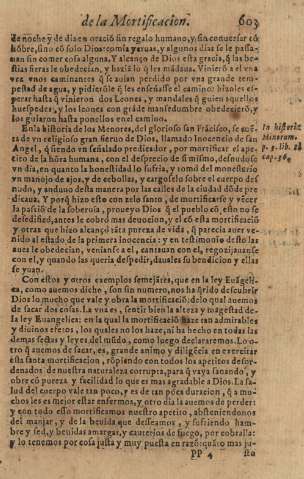 de la Mortificacion. 603
de noche y de dia en oració sin regalo humano, y sin conuersar có
hóbre, sino có solo Dios: comia yeruas, y algunos dias se le passa-
uan sin comer cosa alguna. Y alcanço de Dios esta gracia, q̃ las be-
stias fieras le obedecian, y hazia lo q̃ les mãdaua. Vinierõ a el vna
vez vnos caminantes q̃ se auian perdido por vna grande tem-
pestad de agua, y pidierõle q̃ les enseñasse el camino: hizoles es-
perar hasta q̃ vinieron dos Leones, y mandales q̃ guien aquellos
huespedes, y los leones con grãde mansedumbre obedecierõ, y
los guiaron hasta ponellos en el camino.
En la historia de los Menores, del glorioso san Frácisco, se cuẽ-
ta de vn religioso gran sieruo de Dios, llamado Inocencio de san
Angel, q̃ siendo vn señalado predicador, por mortificar el ape-
tito de la hõra humana, con el desprecio de si mismo, desnudose
vn dia, en quanto la honestidad lo sufria, y tomó del monesterio
vn manojo de ajos, y de cebollas, y cargoselo sobre el cuerpo des
nudo, y anduuo desta manera por las calles de la ciudad dõde pre
dicaua. Y porq̃ hizo esto con zelo santo, de mortificarse y vécer
la passió de la soberuia, proueyó Dios q̃ el pueblo có esto no se
desedificó, antes le cobró mas deuocion, y el có esta mortificació
y otras que hizo alcançó tãta pureza de vida, q̃ parecia auer ve-
nido al estado de la primera inocencia: y en testimonio desto las
aues le obedecian, veníanse a el, cantauan con el, regozijauanse
con el, y quando las queria despedir, dauales su bendicion y ellas
se yuan.
Con estos y otros exemplos semejãtes, que en la ley Euãgeli-
ca, como auemos dicho, son sin numero, nos ha q̃rido descubrir
Dios lo mucho que vale y obra la mortificació: de lo qual auemos
de sacar dos cosas. La vna es, sentir bien la alteza y magestad de
la ley Euangelica: en la qual la mortificació haze tan admirables
y diuinos efetos, los quales no los haze, ni ha hecho en todas las
demas sectas y leyes del mũdo, como luego declararemos. Lo o-
tro q̃ auemos de sacar, es, grande animo y diligẽcia en exercitar
esta santa mortificacion, rõpiendo con todos los apetitos desor-
denados de nuestra naturaleza corrupta, para q̃ vaya sanando, y
obre có pureza y facilidad lo que es mas agradable a Dios. La sa-
lud del cuerpo vale tan poco, y es de tan poca duracion, q̃ a mu-
chos les es mejor estar enfermos, y otro dia la auemos de perder:
y con todo esso mortificamos nuestro apetito, absteniendonos
del manjar, y de la beuida que desseamos, y sufriendo ham-
bre y sed, y beuidas amargas, y cauterios de fuego, por cobralla:
y lo tenemos por cosa justa y muy puesta en razõ: quãto mas ju-
PP 4 sto
In historia
Minorum.
p. 3. lib.
cap.